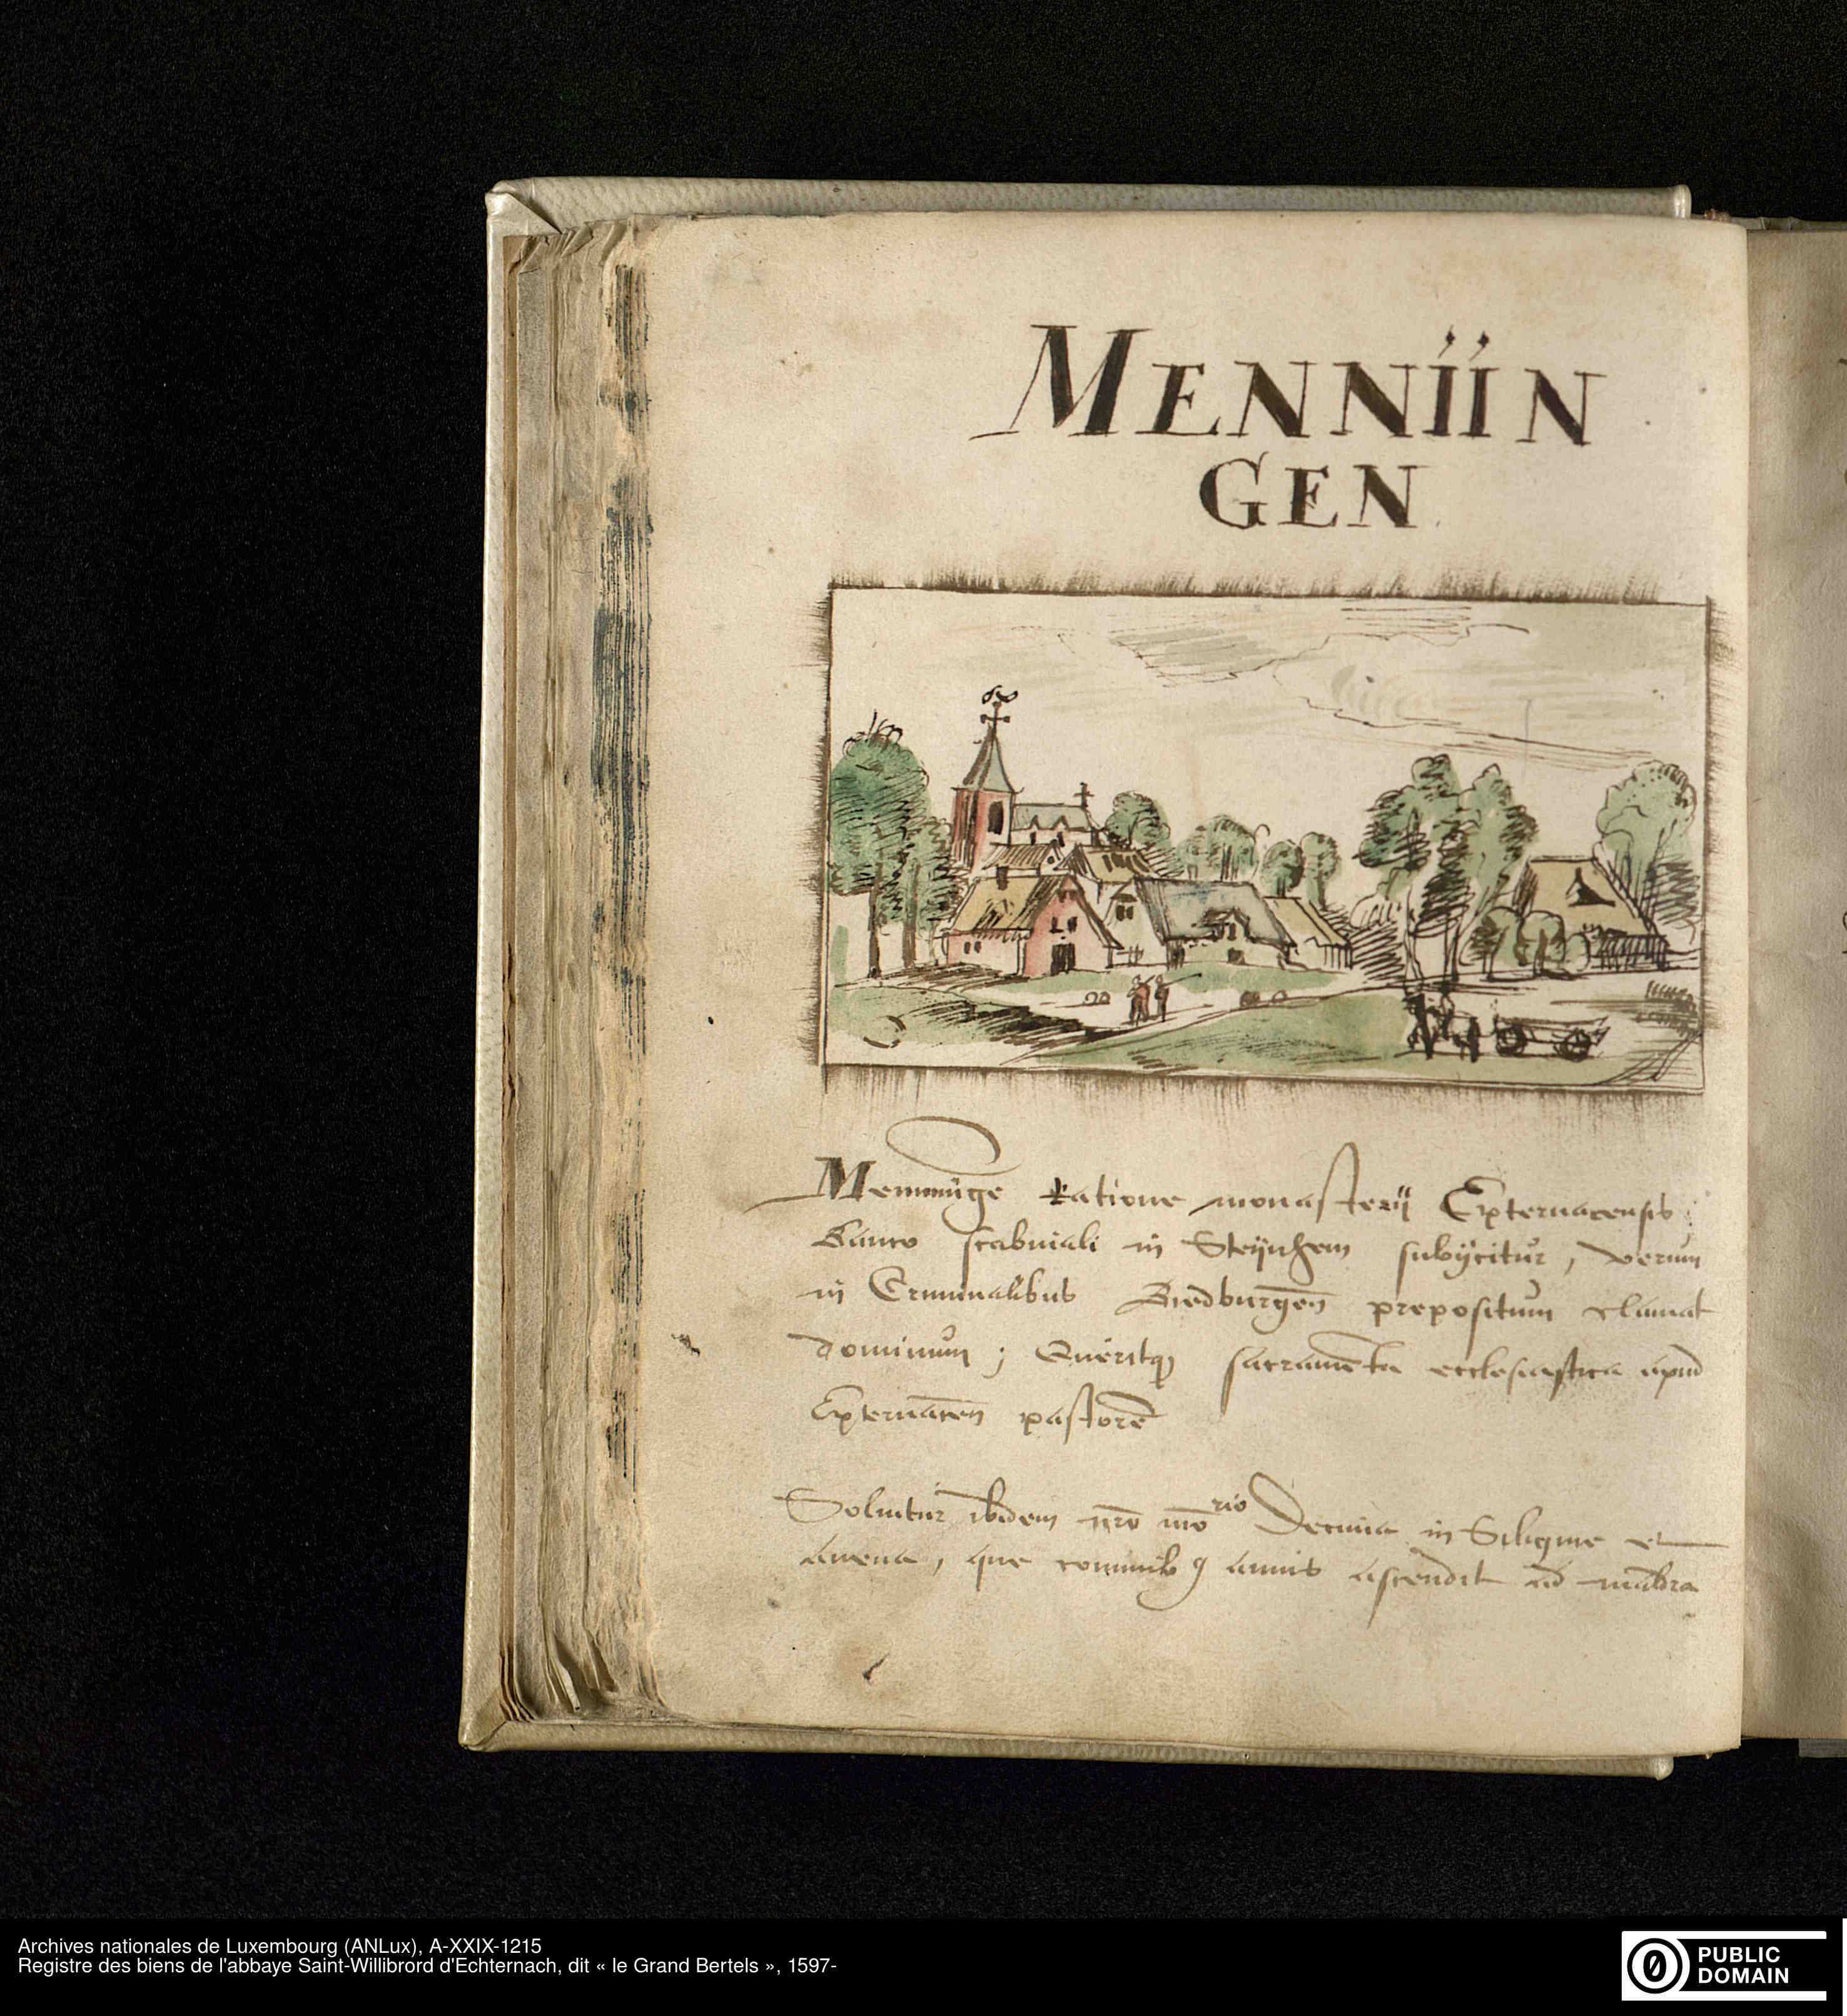 MENNIIN
GEN
Mennüge ratione monasterij Epternacensis
Banco scabinali in Steijnhem subijcitur, verum
in Criminalibus Biedburgēn prepositum clamat
dominum; Queritqꝫ sacramēta ecclesiastica apud
Epternacēn pastorē
Soluitur ibidem nrō mōrio Decima in Siligine et
auena, que comunibꝰ annis ascendit ad maldra
Archives nationales de Luxembourg (ANLux), A-XXIX-1215
Registre des biens de l'abbaye Saint-Willibrord d'Echternach, dit « le Grand Bertels », 1597-
PUBLIC
DOMAIN